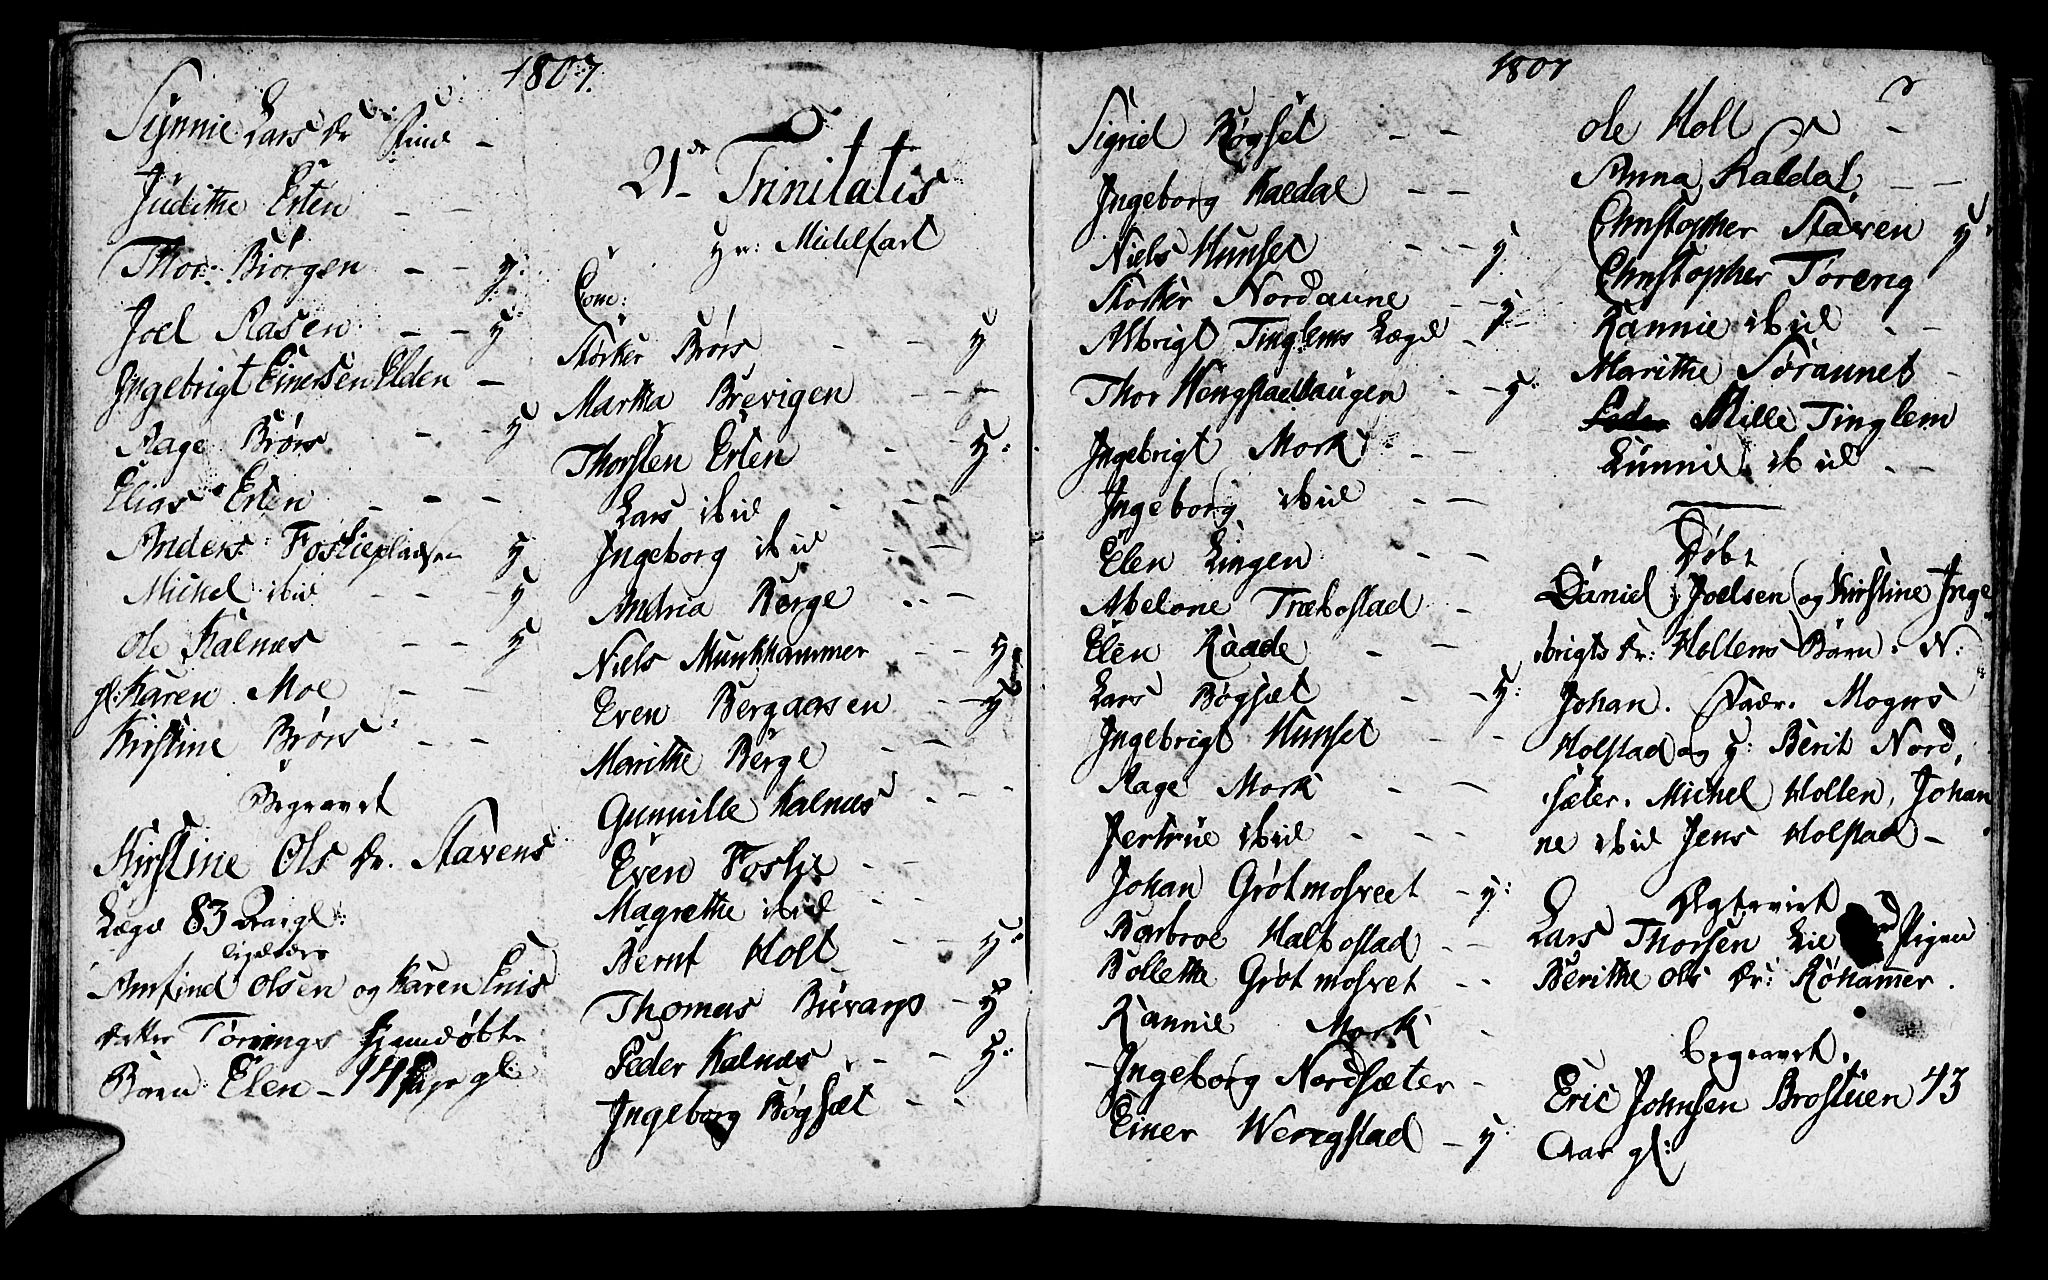 1807.
Synnie Lars Dr
Judithe Erten - -
Thor Biørgen - - y:
Joel Aasen - - y
Ingebrigt Einersen Elden -
Aage Brørs - - y
Elias Erten - - -
Anders Fosliepladsen y
Michel ibid - - y
Ole Kalnæs - - y
gl: Karen Moe - -
Kirstine Brørs - -
Begravet
Kirstine Ols Dr. Stavens
Lægd 83 Aar gl:
ligeledes
Arnfind Olsen og Karen Enis
datter Tørrings hjemdøbte
Barn Elen - 14 Dage gl:
21de Trinitatis
Hr: Midelfart
Com:
Størker Brørs - - y
Martha Brevigen - - -
Thorsten Erten - - y:
Lars ibid - - -
Ingeborg ibid - -
Andria Berge - -
Niels Munkhammer - - y
Even Bergaasen - - y
Marithe Berge - -
Gunnille Kalnæs - - -
Even Foslie - -
Magrethe ibid - -
Bernt Holt - - y:
Thomas Buvarp - y
Peder Kalnæs - - y:
Ingeborg Bøgset - -
1807
Sigrid Bøgset - -
Ingeborg Kaldal - -
Niels Hunset - - y
Størker Nordaune - - y
Albrigt Tinglems Lægd - y -
Thor Wengstadhaugen - - y:
Ingebrigt Mork - -
Ingeborg ibid - -
Elen Lingen - -
Abelone Træbostad -
Elen Raade - -
Lars Bøgset - - y:
Ingebrigt Hunset - -
Aage Mork - -
Jertrue ibid - - -
Johan Grøtmosveet - y:
Barbroe Halbostad - -
Bollethe Grøtmosvet - -
Rannie Mork -
- Ingeborg Nordsæter -
Einer Wengstad - y:
Ole Holt -
Anna Kaldal - -
Christopher Staven y:
Christopher Tøreng
Rannie ibid - -
Marithe Søraunet -
Peder Mille Tinglem
Lunnie ibid - -
Døbt
Daniel Joelsen og Kirstine Inge
brigts Dr: Holtens Barn: N:
Johan. Fadr. Mogns
Holstad og y: Berit Nord,
sæter. Michel Holten, Johan
ne ibid Jens Holstad -
Ægteviet
Lars Thorsen Lie Pigen
Berithe Ols Dr: Røhammer.
Begravet.
Eric Johnsen Brostuen 43
Aar gl: